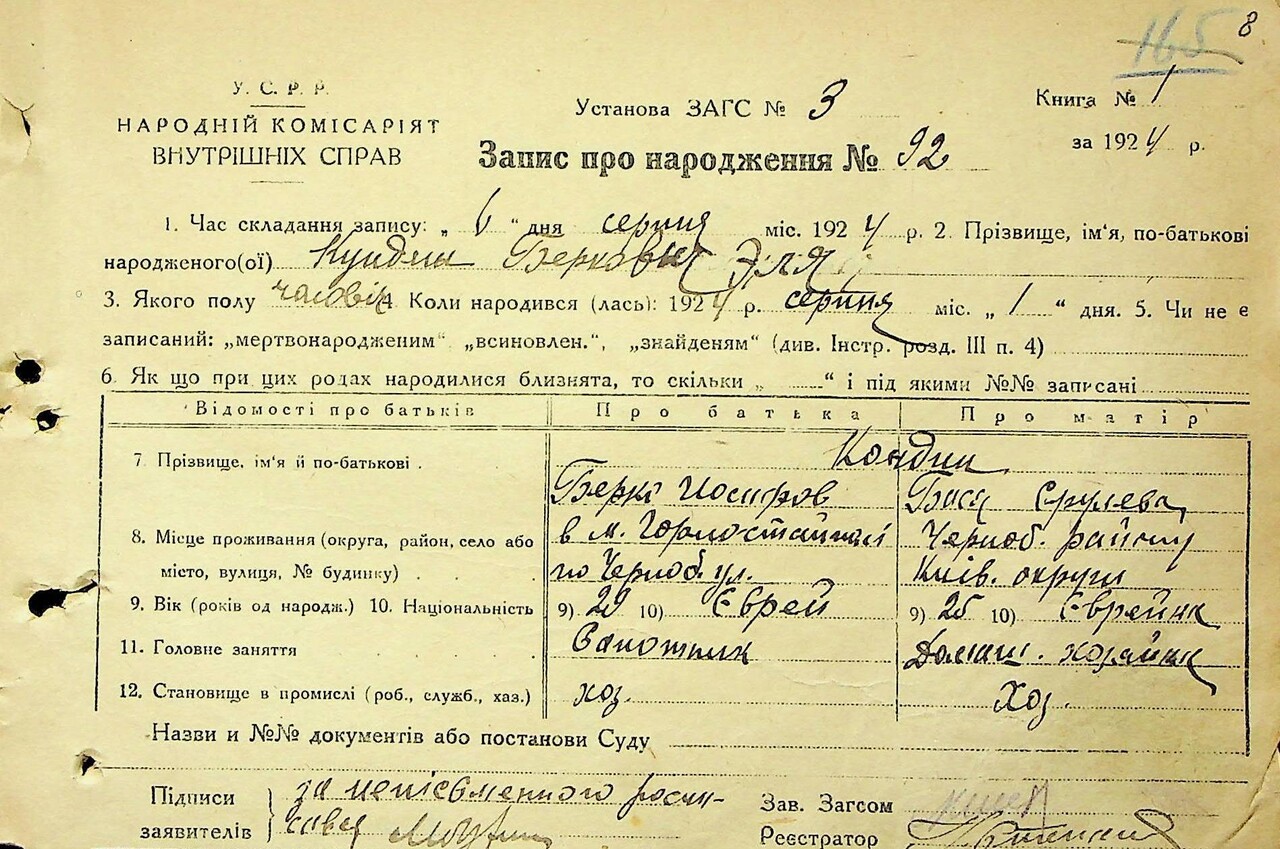 165 8
У. С. Р. Р.
НАРОДНІЙ КОМІСАРІЯТ
ВНУТРІШНІХ СПРАВ
Установа ЗАГС № 3
Книга № 1
за 1924 р.
Запис про народження № 92
1. Час складання запису: „ 6 “ дня серпня міс. 1924 р. 2. Прізвище, ім'я, по-батькові
народженого(ої) Беркович Эля
3. Якого полу чоловік 4 Коли народився (лась): 1924 р. серпня міс. „ 1 “ дня. 5. Чи не є
записаний: „мертвонародженим“ „всиновлен.“, „знайденям“ (див. Інстр. розд. III п. 4)
6. Як що при цих родах народилися близнята, то скільки „ “ і під якими №№ записані
Відомості про батьків Про батька Про матір
7 Прізвище, ім'я й по-батькові .
Берко Иосифов Бася Срулева
8. Місце проживання (округа, район, село або в м. Горностайполі Черноб. району
місто, вулиця, № будинку) . . . по Черноб. ул. Київ. округи
9. Вік (років од народж.) 10. Національність 9) 29 10) Єврей 9) 25 10) Єврейка
11. Головне заняття . . . . Сапожник Домаш. хозяйка
12. Становище в промислі (роб., служб., хаз.) хоз. Хоз.
Назви и №№ документів або постанови Суду
Підписи за неписьменного роспи-
заявителів
Зав. Загсом
Реєстратор